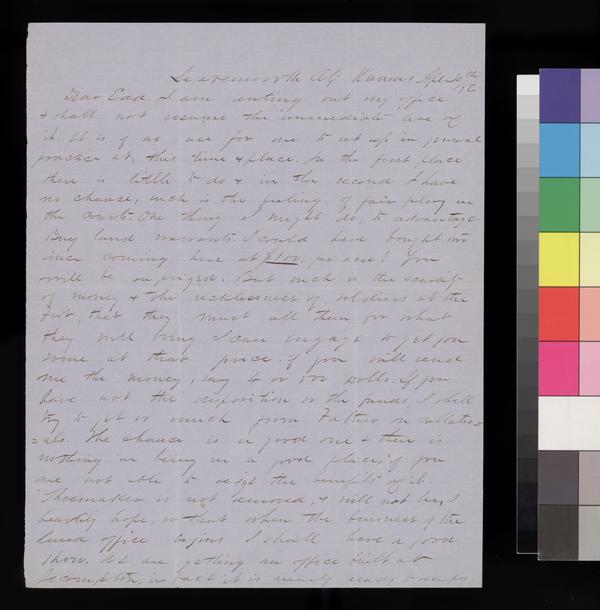 Leavenworth City Kansas Apl 20th /56
Dear Edd. I am cutting out my office
& shall not resume the immediate use of
it. It is of no use for me to set up in general
practice at this time & place. In the first place
there is little to do & in the second I have
no chance, such is the feeling, of fair play in
the Courts. One thing I might do, to advantage
Buy land warrants. I could have bought two
since coming here at $1.00. per acre! You
will be surprized. But such is the scarcity
of money & the recklessness of soldiers at the
Fort, that they must sell them for what
they will bring I can engage to get you
some at that price if you will send
me the money, say 4 or 500 Dolls. If you
have not the disposition or the funds, I shall
try to get as much from Father on collater=
=als. The chance is a good one & there is
nothing in being in a good place, if you
are not able to seize the benefits of it.
Shoemaker is not removed, & will not be, I
heartily hope, so that when the business of the
land office begins I shall have a good
show. We are getting an office built at
Lecompton, in fact it is nearly ready to occupy.